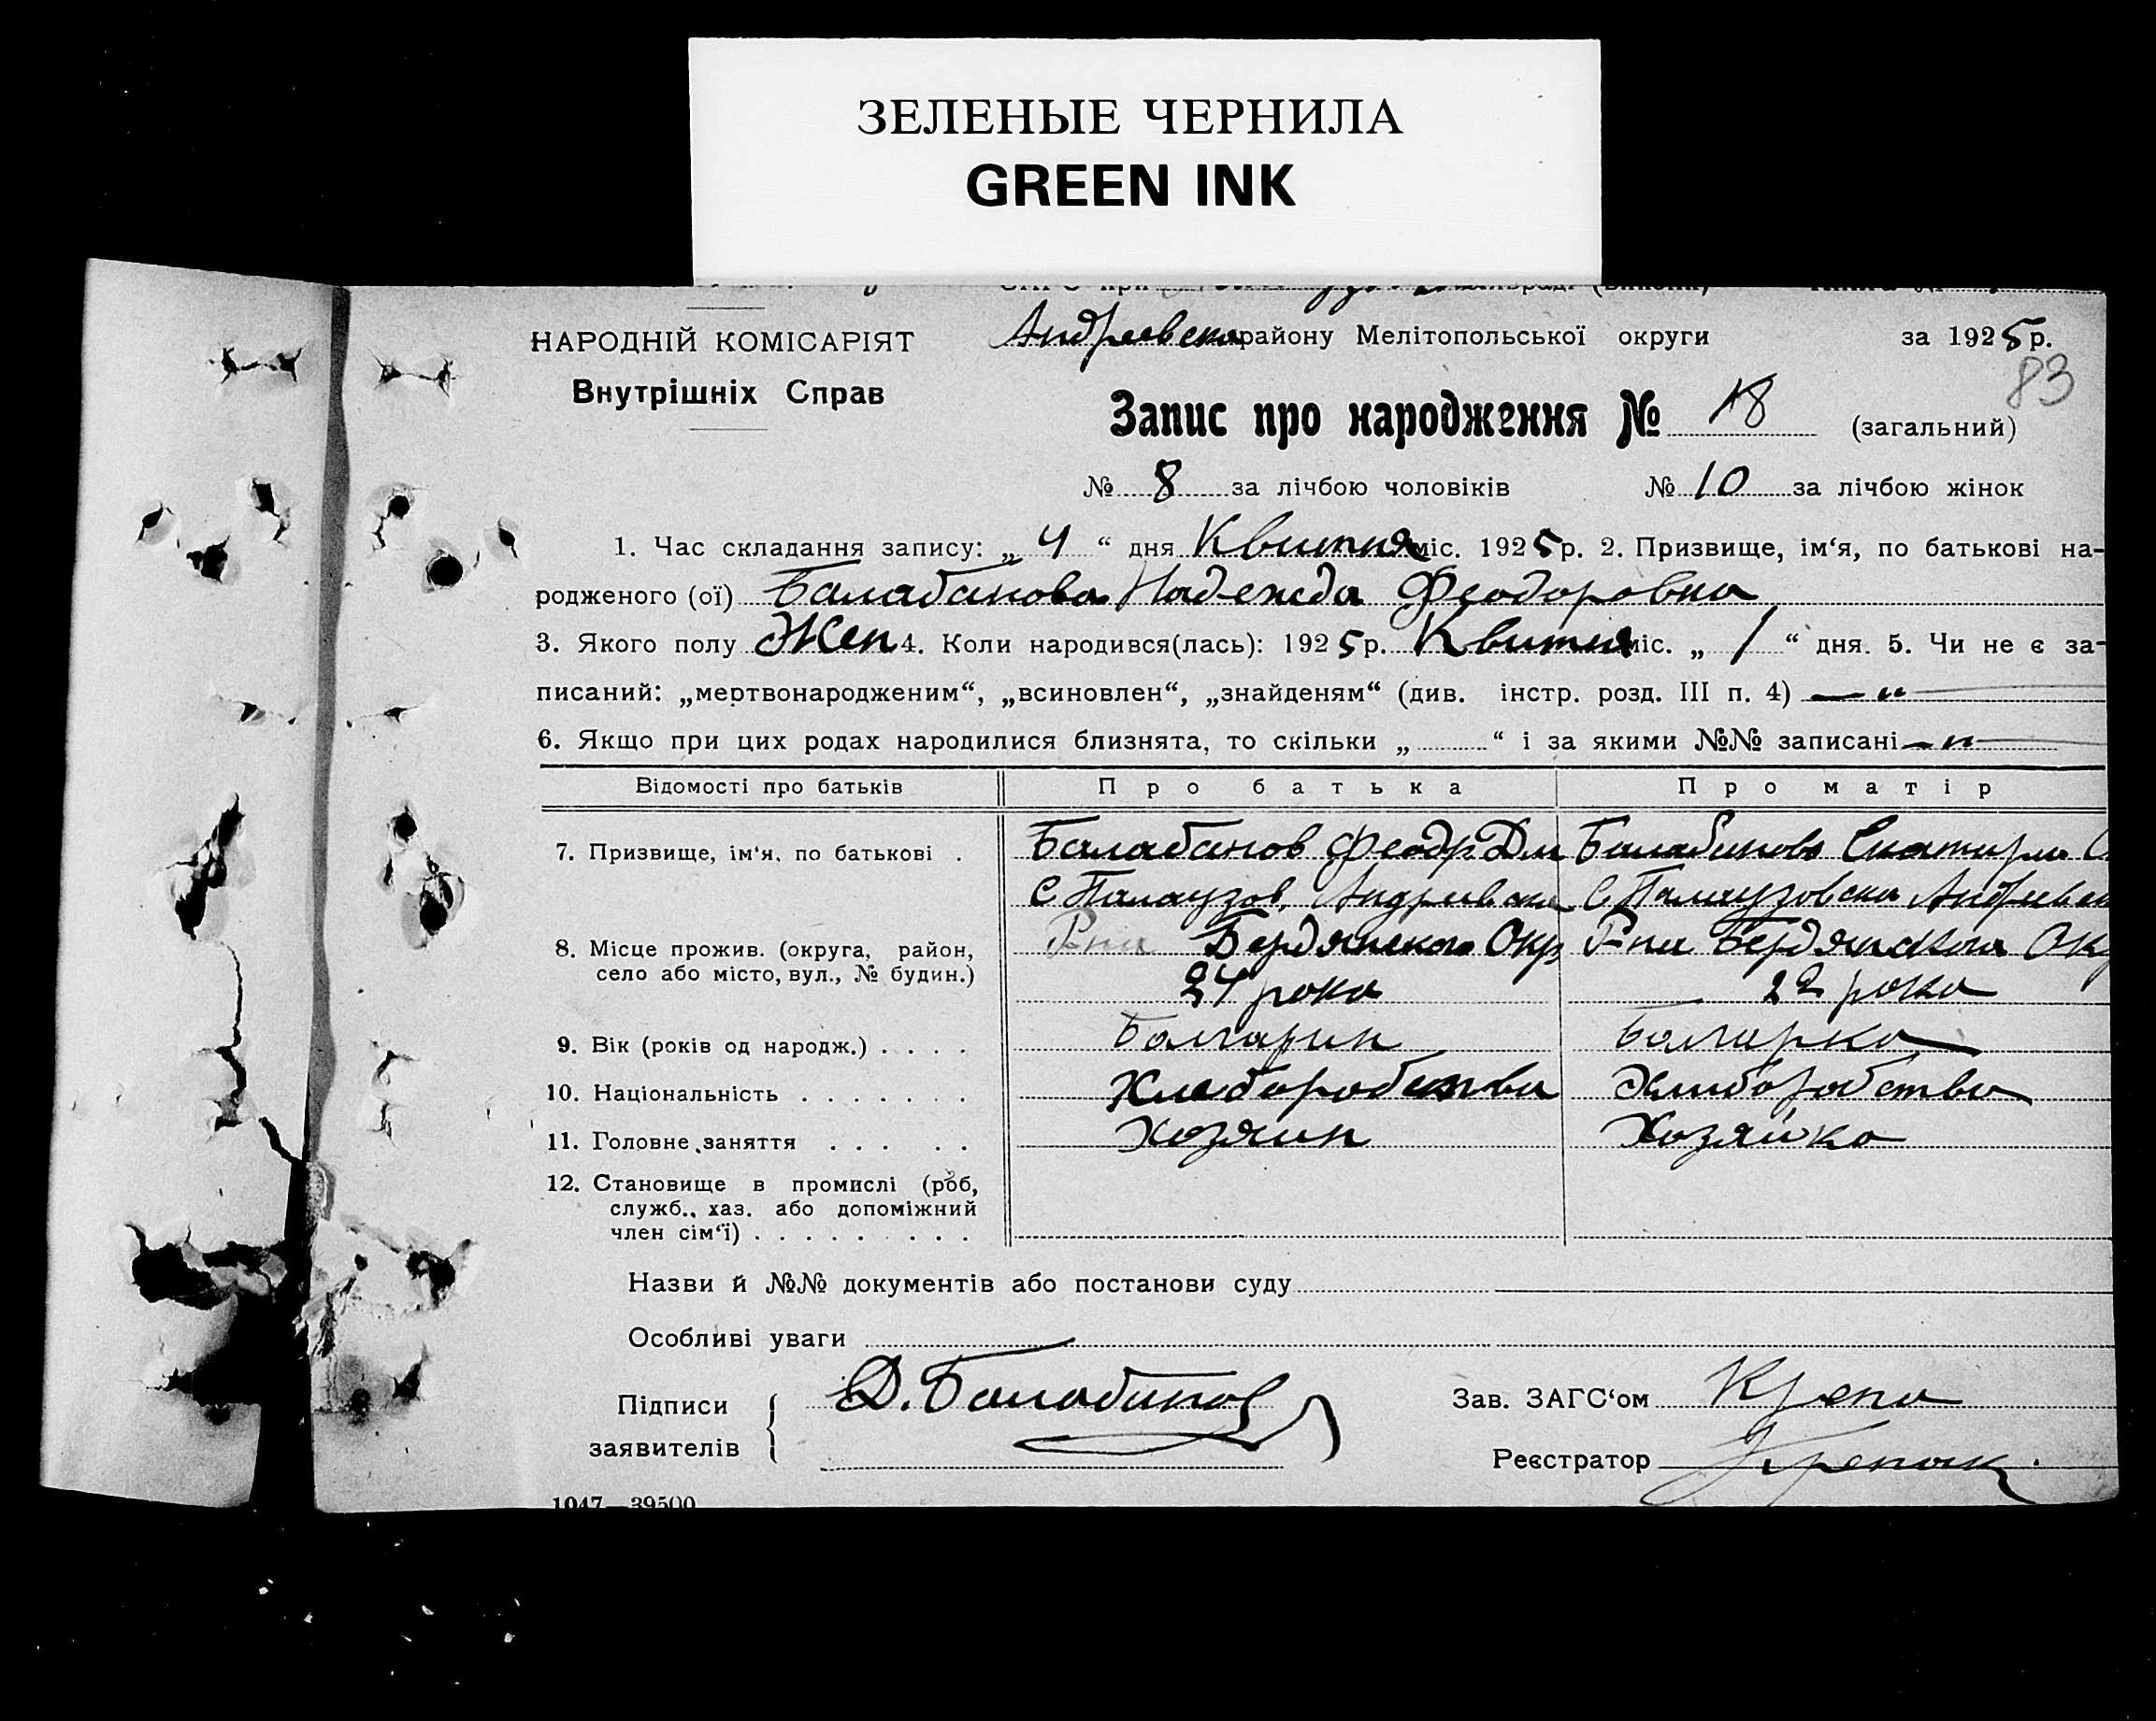 ЗЕЛЕНЫЕ ЧЕРНИЛА
GREEN INK
НАРОДНІЙ КОМІСАРІЯТ
Внутрішніх Справ
Андреевскарайону Мелітопольської округи за 1925р.
83
Запис про народження № 18 (загальний)
№ 8 за лічбою чоловіків № 10 за лічбою жінок
1. Час складання запису: „ 4 “ дня Квитня міс. 1925р. 2. Призвище, ім‘я, по батькові на-
родженого (ої) Балабанова Надежда Феодоровна
3. Якого полу Жен 4. Коли народився(лась): 1925р. Квитня міс. „ 1 “ дня. 5. Чи не є за-
писаний: „мертвонародженим“, „всиновлен“, „знайденям“ (див. інстр. розд. III п. 4) — „
6. Якщо при цих родах народилися близнята, то скільки „ “ і за якими №№ записані — „
Відомості про батьків Про батька Про матір
7. Призвище, ім‘я, по батькові . Балабанов Феодр Дм Балабанова Екатирна С
С Палаузов, Андривска С Палаузовска Андривск
8. Місце прожив. (округа, район, село або місто, вул., № будин.) Р-на Бердянскоа Окр Р-на Бердянскоа Окр
24 рока 22 рока
9. Вік (років од народж.) . . . . Болгарин Болгарка
10. Національність . . . . . . . Хлеборобства Хлиборобства
11. Головне заняття . . . . . Хозяин Хозяйка
12. Становище в промислі (роб,
служб., хаз. або допоміжний
член сім‘ї) . . . . . . . . .
Назви й №№ документів або постанови суду
Особливі уваги
Підписи Д. Балабанов Зав. ЗАГС‘ом
заявителів Реєстратор
1047—39500